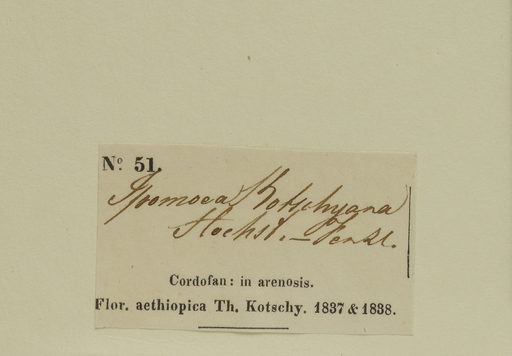 No. 51.
Ipomoea Kotschyana
Hochst. —
Cordofan: in arenosis.
Flor. aethiopica Th. Kotschy. 1837 & 1838.